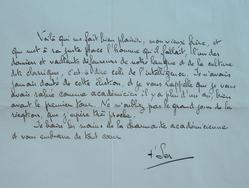 Voilà qui me fait bien plaisir, mon vieux frère, et
qui met à sa juste place l'homme qu'il fallait, l'un des
derniers et vaillants défenseurs de notre langue et de la culture
dite classique, c'est-à-dire celle de l'intelligence. Je n'avais
jamais douté de cette élection, et je vous rappelle que je vous
avais salué comme académicien il y a plus d'un an, bien
avant le premier tour. Ne m'oubliez pas le grand jour de la
réception, que j'espère très proche.
Je baise les mains de la charmante académicienne
et vous embrasse de tout cœur